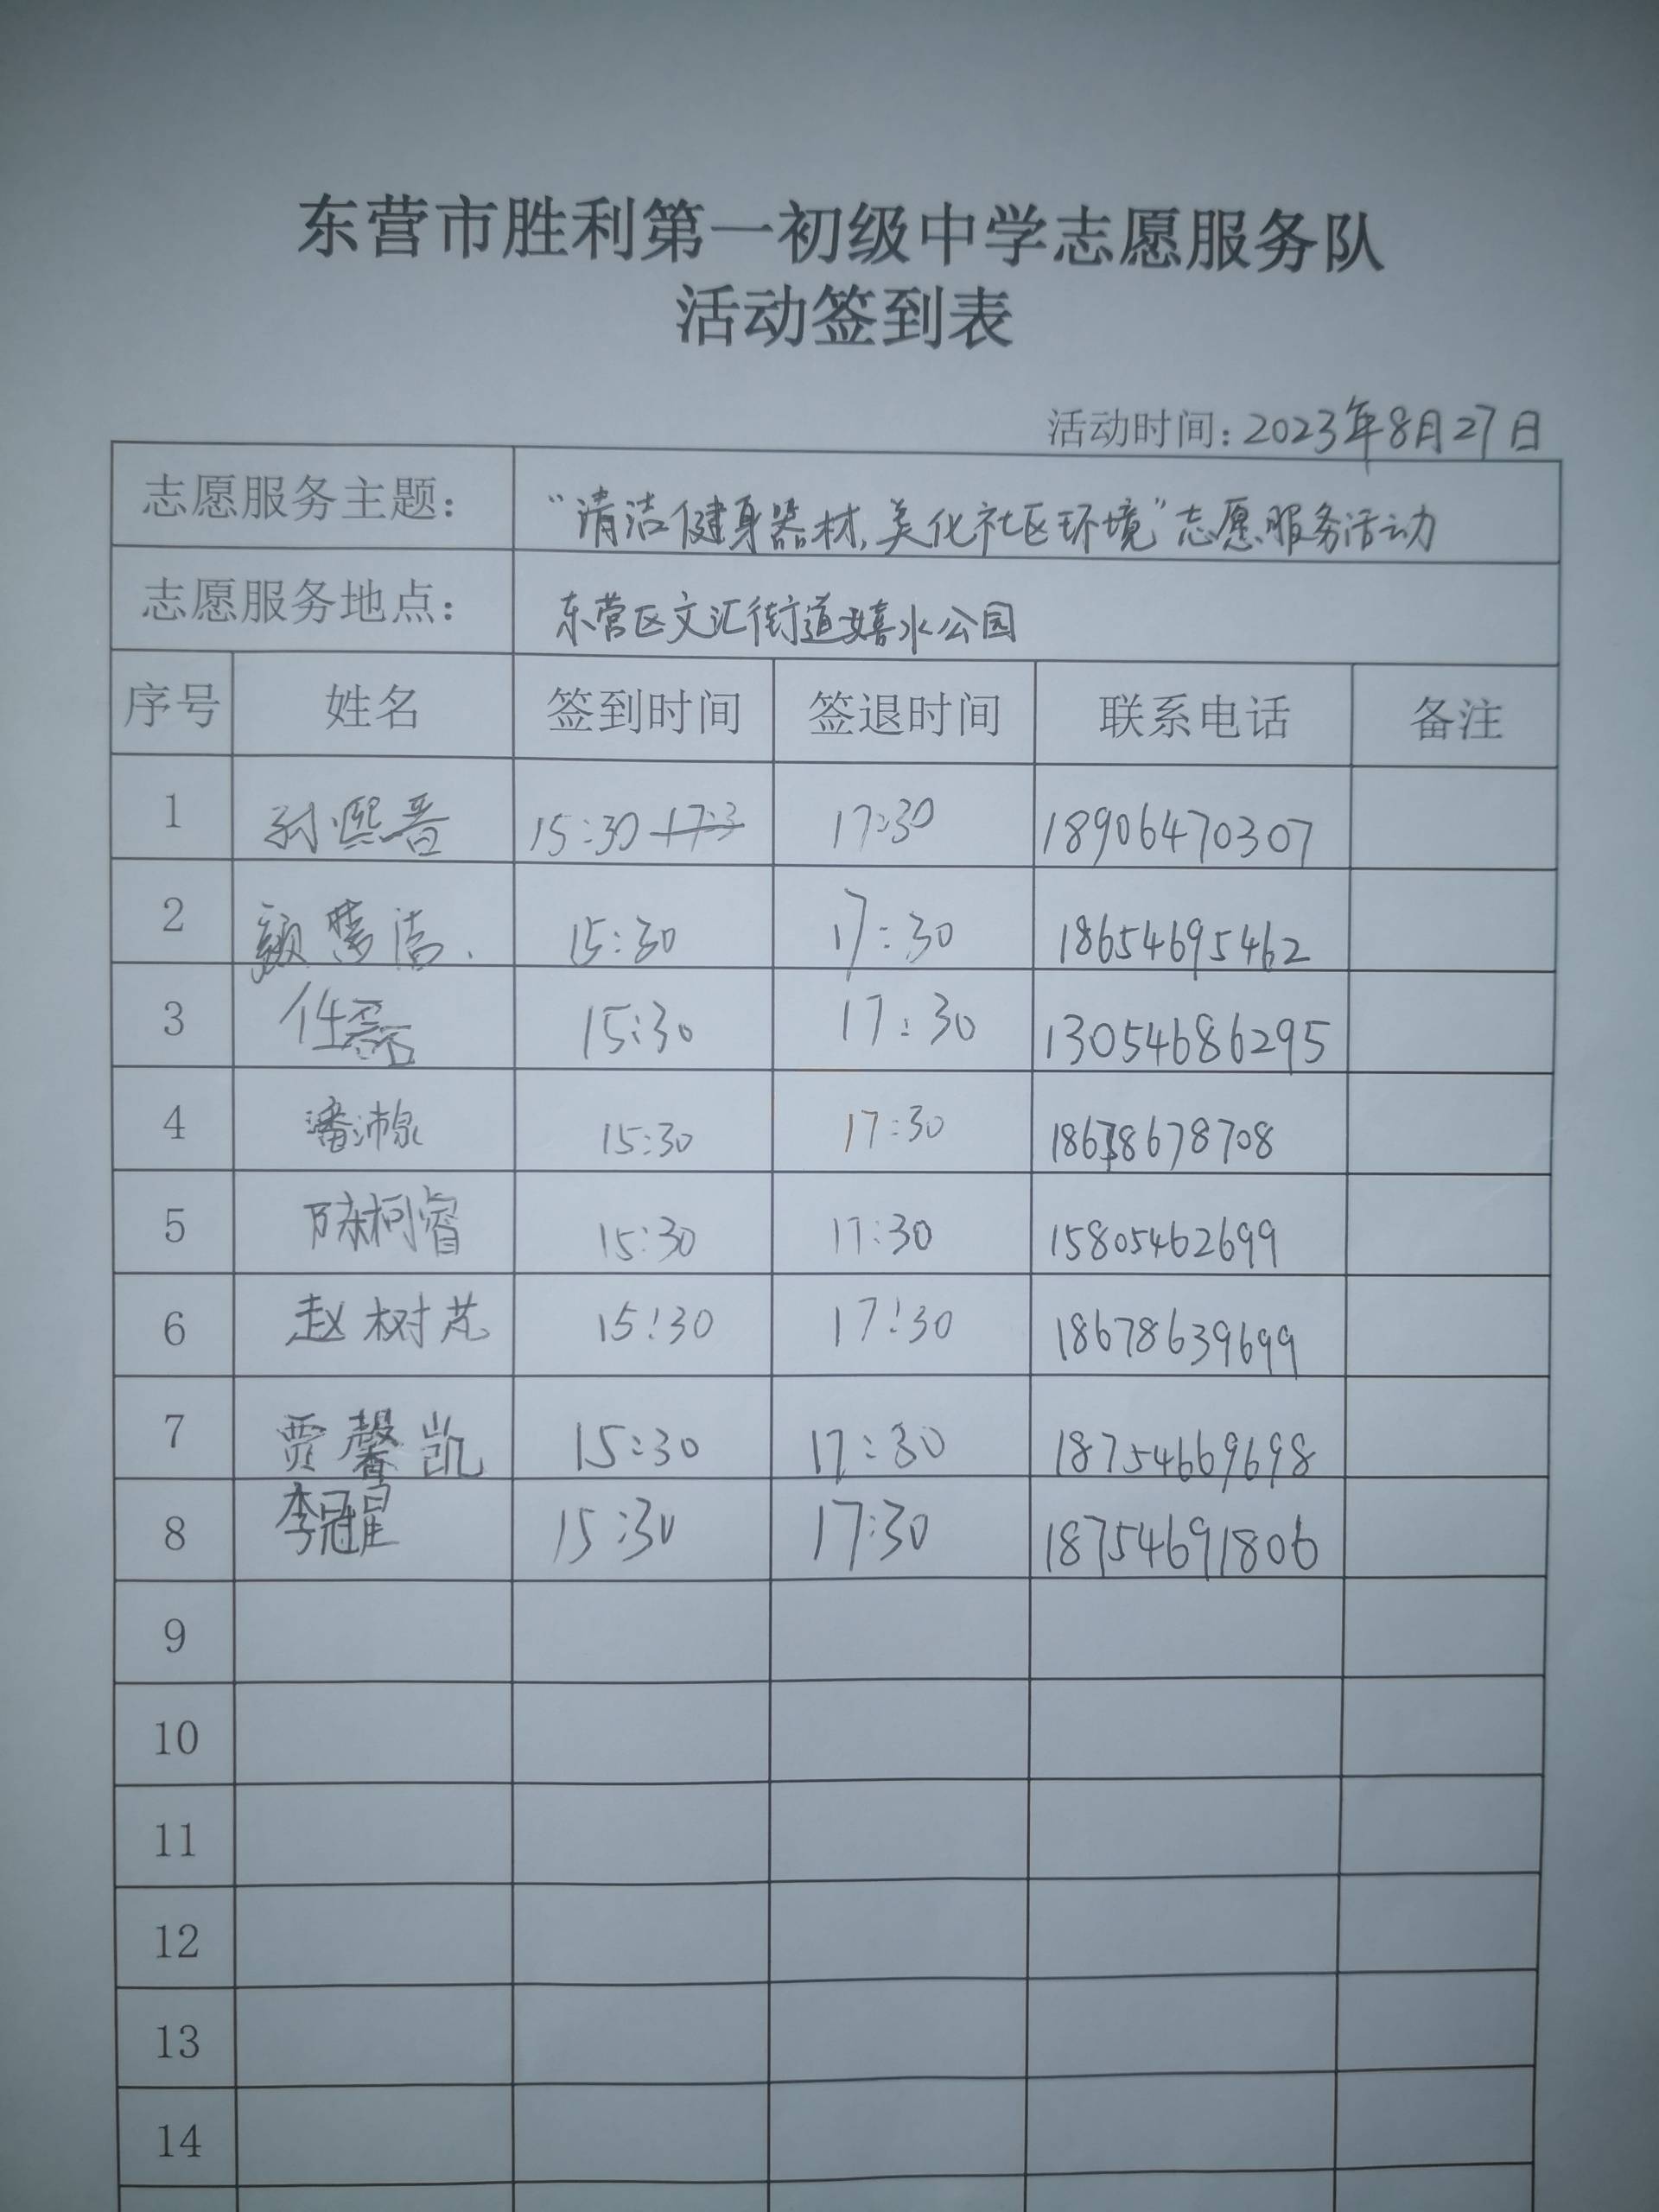 东营市胜利第一初级中学志愿服务队
活动签到表
活动时间：2023年8月27日
志愿服务主题： “清洁健身器材，美化社区环境”志愿服务活动
志愿服务地点： 东营区文汇街道嬉水公园
序号 姓名 签到时间 签退时间 联系电话 备注
1 孙熙晋 15:30 17:3 17:30 18906470307
2 15:30 17:30 18654695462
3 任磊 15:30 17:30 13054686295
4 潘沛泉 15:30 17:30 18678678708
5 柯睿 15:30 17:30 15805462699
6 赵树芃 15:30 17:30 18678639699
7 贾馨凯 15:30 17:30 18754669698
8 李冠星 15:30 17:30 18754691806
9
10
11
12
13
14